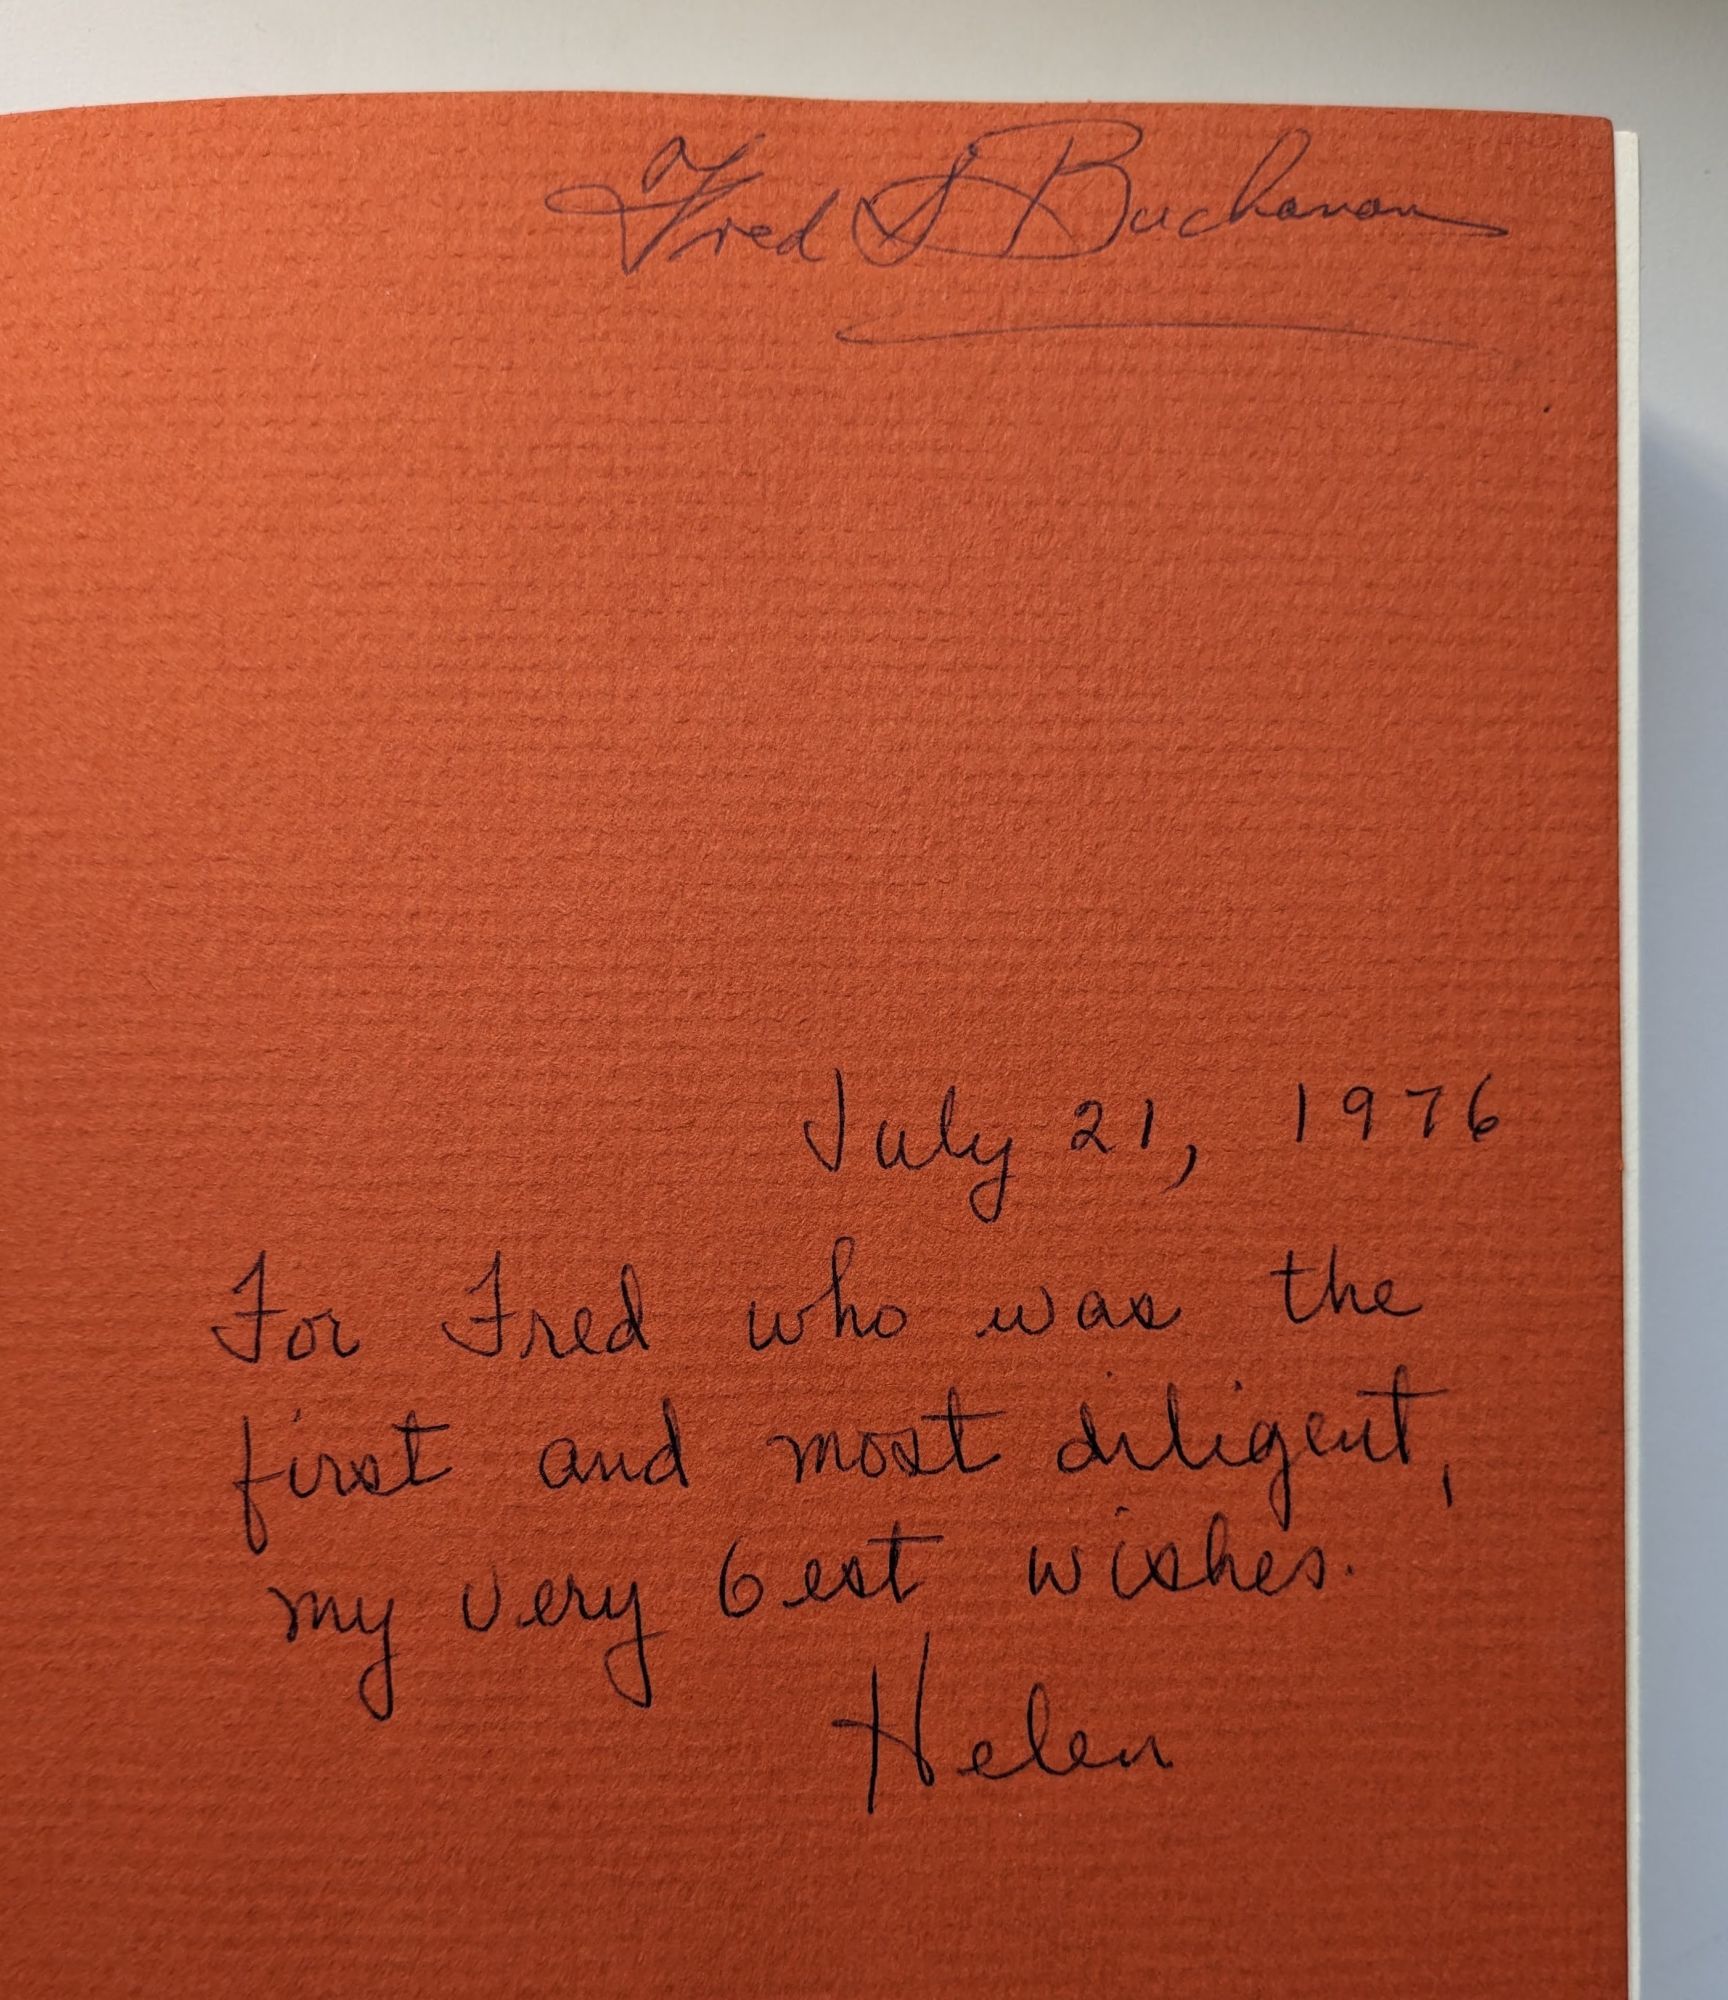 Fred S Buchanan
July 21, 1976
For Fred who was the
first and most diligent,
my very best wishes.
Helen